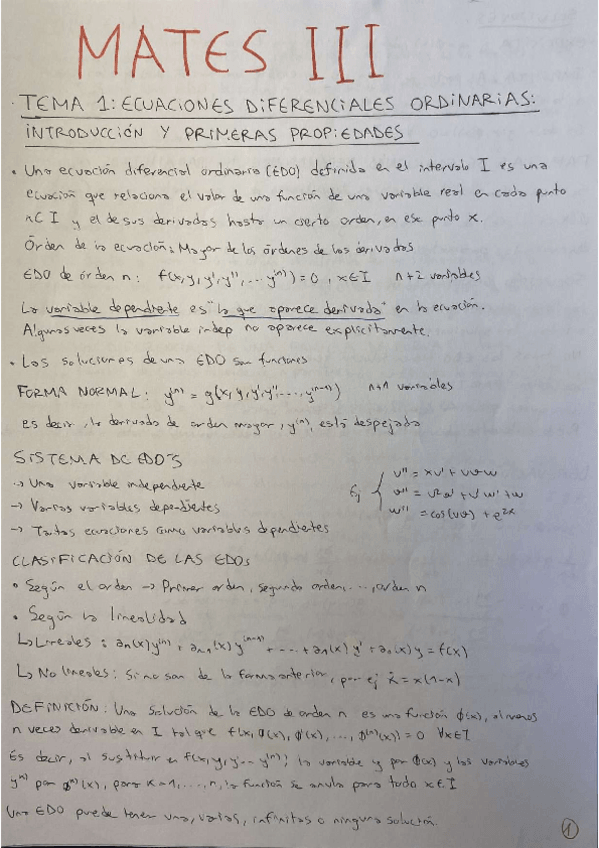 MATES III
· TEMA 1: ECUACIONES DIFERENCIALES ORDINARIAS:
INTRODUCCIÓN Y PRIMERAS PROPIEDADES
• Una ecuación diferencial ordinaria (EDO) definida en el intervalo I es una
ecuación que relaciona el valor de una función de una variable real en cada punto
x ⊂ I y el de sus derivadas hasta un cierto orden, en ese punto x.
Órden de la ecuación: Mayor de los órdenes de las derivadas
EDO de órden n: f(x, y, y', y'', ... y⁽ⁿ⁾) = 0 , x∈I n+2 variables
La variable dependiente es "la que aparece derivada" en la ecuación.
Algunas veces la variable indep no aparece explícitamente.
• Las soluciones de una EDO son funciones
FORMA NORMAL: y⁽ⁿ⁾ = g(x, y, y', y'', ..., y⁽ⁿ⁻¹⁾) n+1 variables
es decir, la derivada de orden mayor, y⁽ⁿ⁾, está despejada
SISTEMA DE EDO'S
→ Una variable independiente
→ Varias variables dependientes
→ Tantas ecuaciones como variables dependientes
Ej
= cos(uv) + e²ˣ
CLASIFICACIÓN DE LAS EDOs
• Según el orden → Primer orden, segundo orden, ..., orden n
• Según la linealidad
↳ Lineales: aₙ(x) y⁽ⁿ⁾ + aₙ₋₁(x) y⁽ⁿ⁻¹⁾ + ... + a₁(x) y' + a₀(x) y = f(x)
↳ No lineales: Si no son de la forma anterior, por ej ẋ = x(1-x)
DEFINICIÓN: Una solución de la EDO de orden n es una función ϕ(x), al menos
n veces derivable en I tal que f(x, ϕ(x), ϕ'(x), ..., ϕ⁽ⁿ⁾(x)) = 0 ∀x∈I
Es decir, al sustituir en f(x, y, y' ... y⁽ⁿ⁾); la variable y por ϕ(x) y las variables
y⁽ᵏ⁾ por ϕ⁽ᵏ⁾(x), para k=1, ..., n, la función se anula para todo x∈I
Una EDO puede tener una, varias, infinitas o ninguna solución.
1